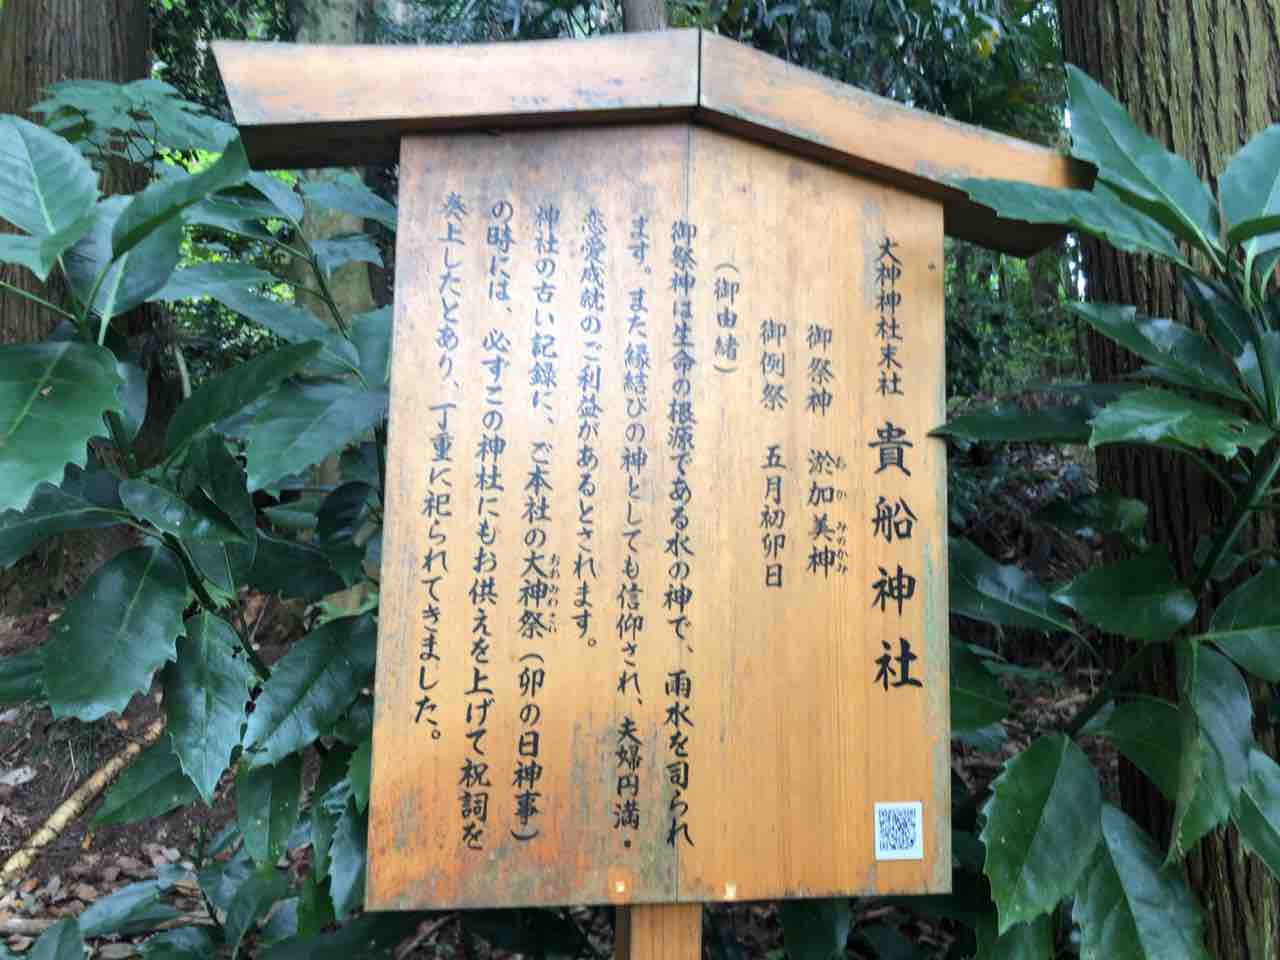 大神神社末社 貴船神社
御祭神 淤加美神
おか みのかみ
御例祭 五月初卯日
(御由緒)
御祭神は生命の根源である水の神で、雨水を司られ
ます。また縁結びの神としても信仰され、夫婦円満・
恋愛成就のご利益があるとされます。
神社の古い記録に、ご本社の大神祭(卯の日神事)
おおみわさい
の時には、必ずこの神社にもお供えを上げて祝詞を
奏上したとあり、丁重に祀られてきました。